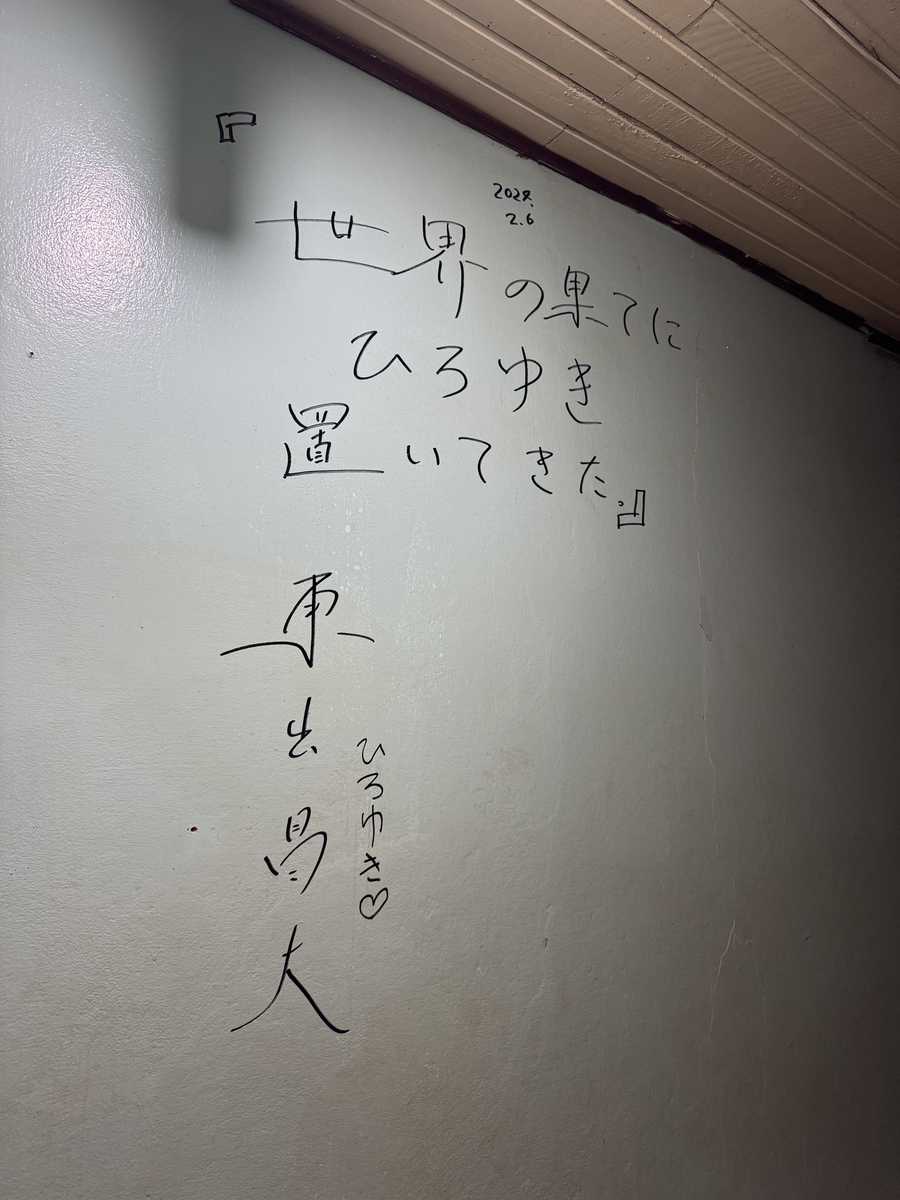 『
2024.
2.6
世界の果てに
ひろゆき
置いてきた。』
東出昌大
ひろゆき♡